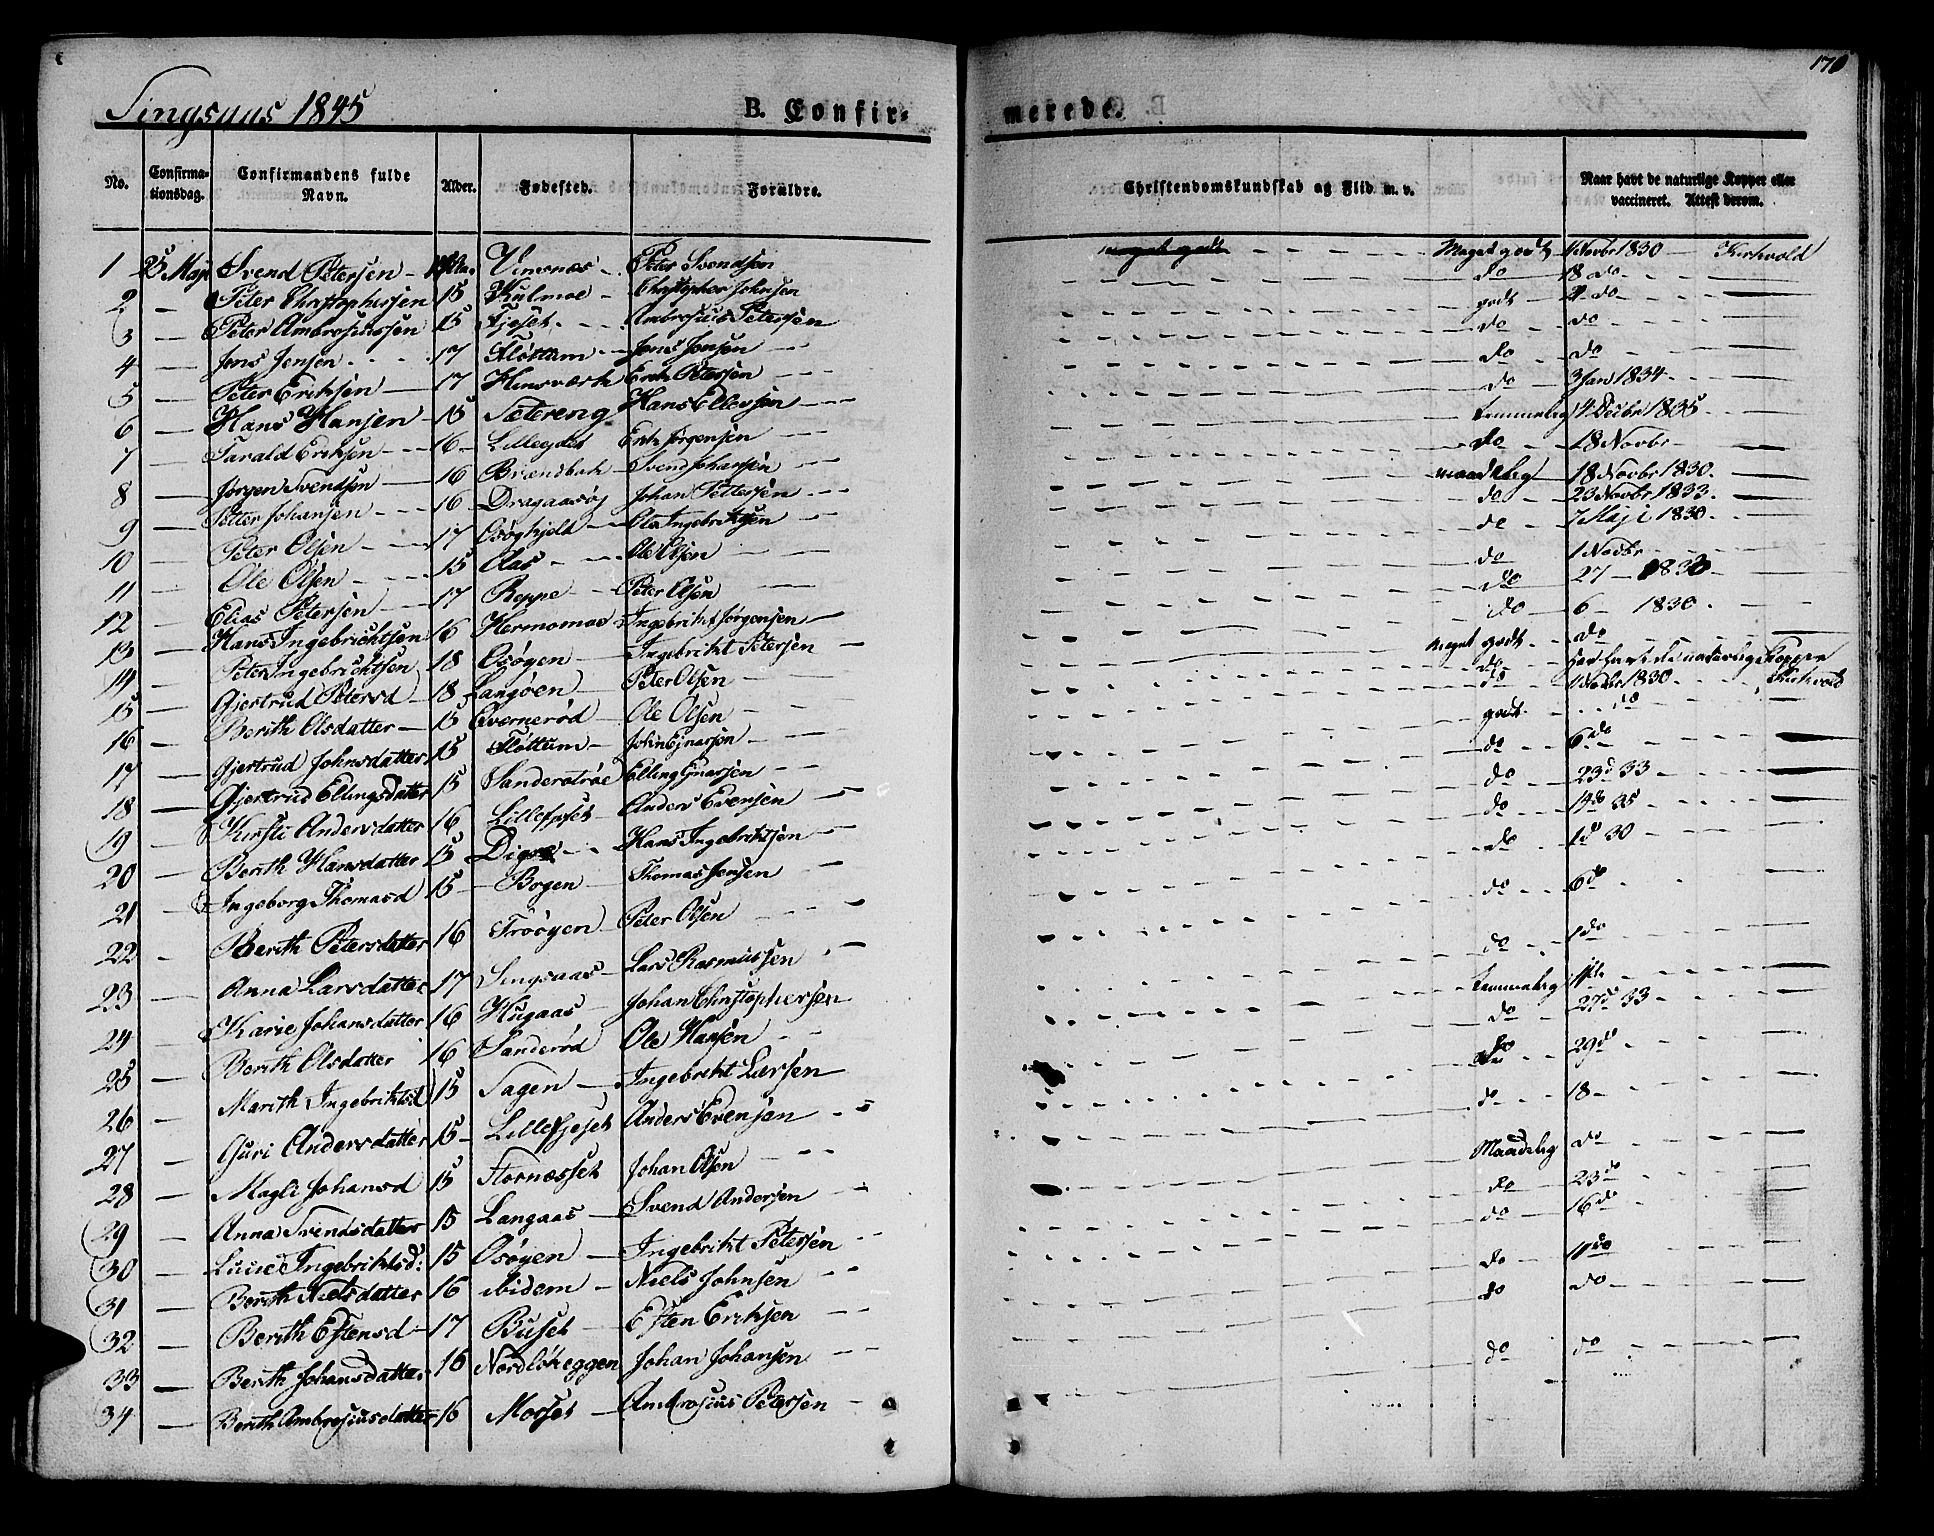 170
Singsaas 1845 B. Confir- merede.
No. Confirma-tionsdag. Confirmandens fulde Navn. Alder. Fødested. Forældre. Christendomskundskab og Flid m. v. Naar havt de naturlige Kopper eller vaccineret. Attest derom.
1 25 Maji Svend Petersen Vinsnæs Peter Svendsen Meget godt 1 Novbr 1830 Kirkvold
2 — Peter Christophersen 15 Kulmoe Christopher Johnsen do 18 do
3 — Peter Ambrosiussen 15 Fjeset Ambrosius Petersen godt do
4 — Jens Jensen 17 Fløttum Jens Jensen do do
5 — Peter Eriksen 17 Hinsværk Erik Petersen do do
6 — Hans Hansen 15 Sætereng Hans Ellevsen do 3 Jan 1834
7 — Tarald Eriksen 16 Erik Jørgensen temmelig 14 Decbr 1835
8 — Jørgen Svendsen 16 Brændbak Svend Johansen do 18 Novbr
9 — Petter Johansen 16 Dragaasøj Johan Pettersen maadelig 18 Novbr 1830
10 Peter Olsen 17 Ole Ingebriktsen do 23 Novbr 1833
11 Ole Olsen 15 Aas Ole Olsen do 7 Maji 1830
12 — Elias Petersen 17 Reppe Peter Olsen do 1 Novbr
13 — Hans Ingebrichtsen 16 Hermomoe Ingebrikt Jørgensen do 27 — 1830
14 — Peter Ingebrichtsen 18 Osøyen Ingebrikt Petersen do 6 — 1830
15 — Gjertrud Petersd 18 Langøen Peter Olsen meget godt do
16 — Berith Olsdatter 15 Qværnerød Ole Olsen do har havt de naturlige Kopper
17 — Gjertrud Johnsdatter 15 Fløttum John Ejnarsen do 1 Novbr 1830 Kirkvold
18 — Gjertrud Ellingsdatter 15 Sanderstrøe Elling Ejnarsen godt do
19 — Kirsti Andersdatter 16 Anders Evensen do 6 do
20 — Berith Hansdatter 15 Digre Hans Ingebriktsen do 23 d 33
21 — Ingeborg Thomasd 15 Bogen Thomas Jensen do 14 do 35
22 — Berith Petersdatter 16 Frøøyen Peter Olsen do 1 d 30
23 — Anna Larsdatter 17 Singsaas Lars Rasmussen do 6 do
24 — Karie Johansdatter 16 Hugaas Johan Christophersen do 1 do
25 — Berith Olsdatter 16 Sanderød Ole Hansen temmelig
26 — Marith Ingebriktsd 15 Sagen Ingebrikt Larsen do 27 d 33
27 — Guri Andersdatter 15 Lillefjeset Anders Evensen do 29 d
28 — Magli Johansd 15 Fornæsset Johan Olsen do 18
29 — Anna Svendsdatter 15 Langaas Svend Andersen Maadelig do
30 — Lucie Ingebriktsd: 15 Osøyen Ingebrikt Petersen do 23 do
31 — Berith Nielsdatter 16 ibidem Niels Johnsen do 16 do
32 — Berith Estensd 17 Buset Esten Eriksen do do
33 — Berith Johansdatter 16 Nordløkeggen Johan Johansen do do
34 — Berith Ambrosiusdatter 16 Morset Ambrosius Petersen do do